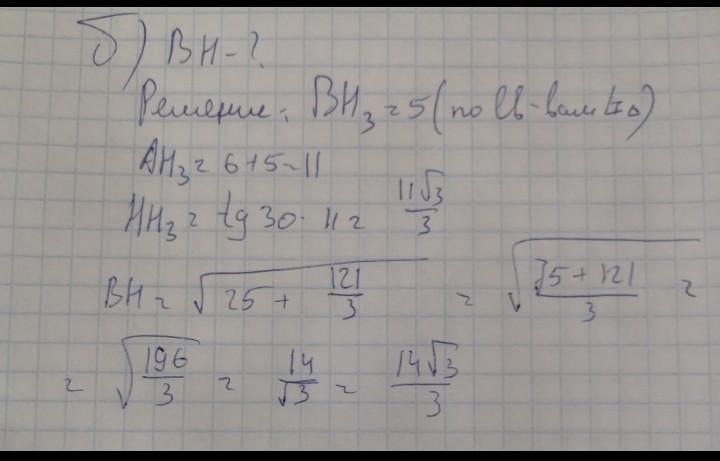 б) BH - ?
Решение: BH₃ = 5 (по св-вам
AH₃ = 6+5 = 11
HH₃ = tg 30 · 11 = 11√3/3
BH = √(25 + 121/3) = √((75 + 121)/3) =
= √(196/3) = 14/√3 = 14√3/3